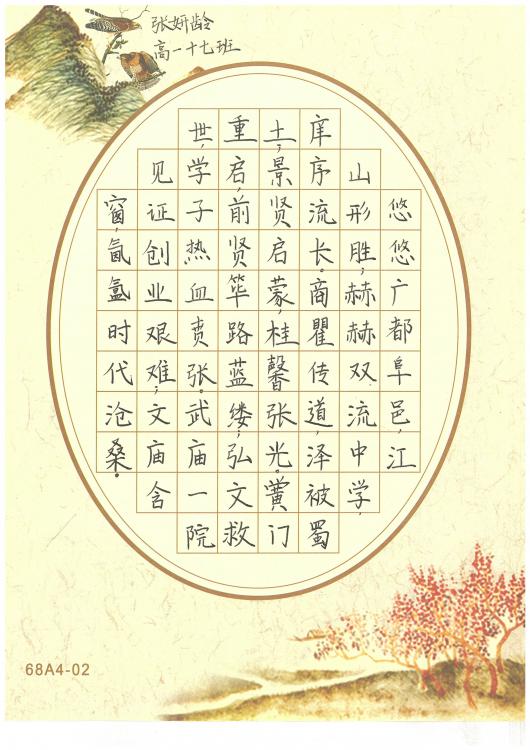 张妍龄
高一十七班
悠悠广都阜邑,江
山形胜,赫赫双流中学,
庠序流长。商瞿传道,泽被蜀
土;景贤启蒙,桂馨张光。黉门
重启,前贤筚路蓝缕,弘文救
世,学子热血贲张。武庙一院
见证创业艰难;文庙含
窗,氤氲时代沧桑。
68A4-02